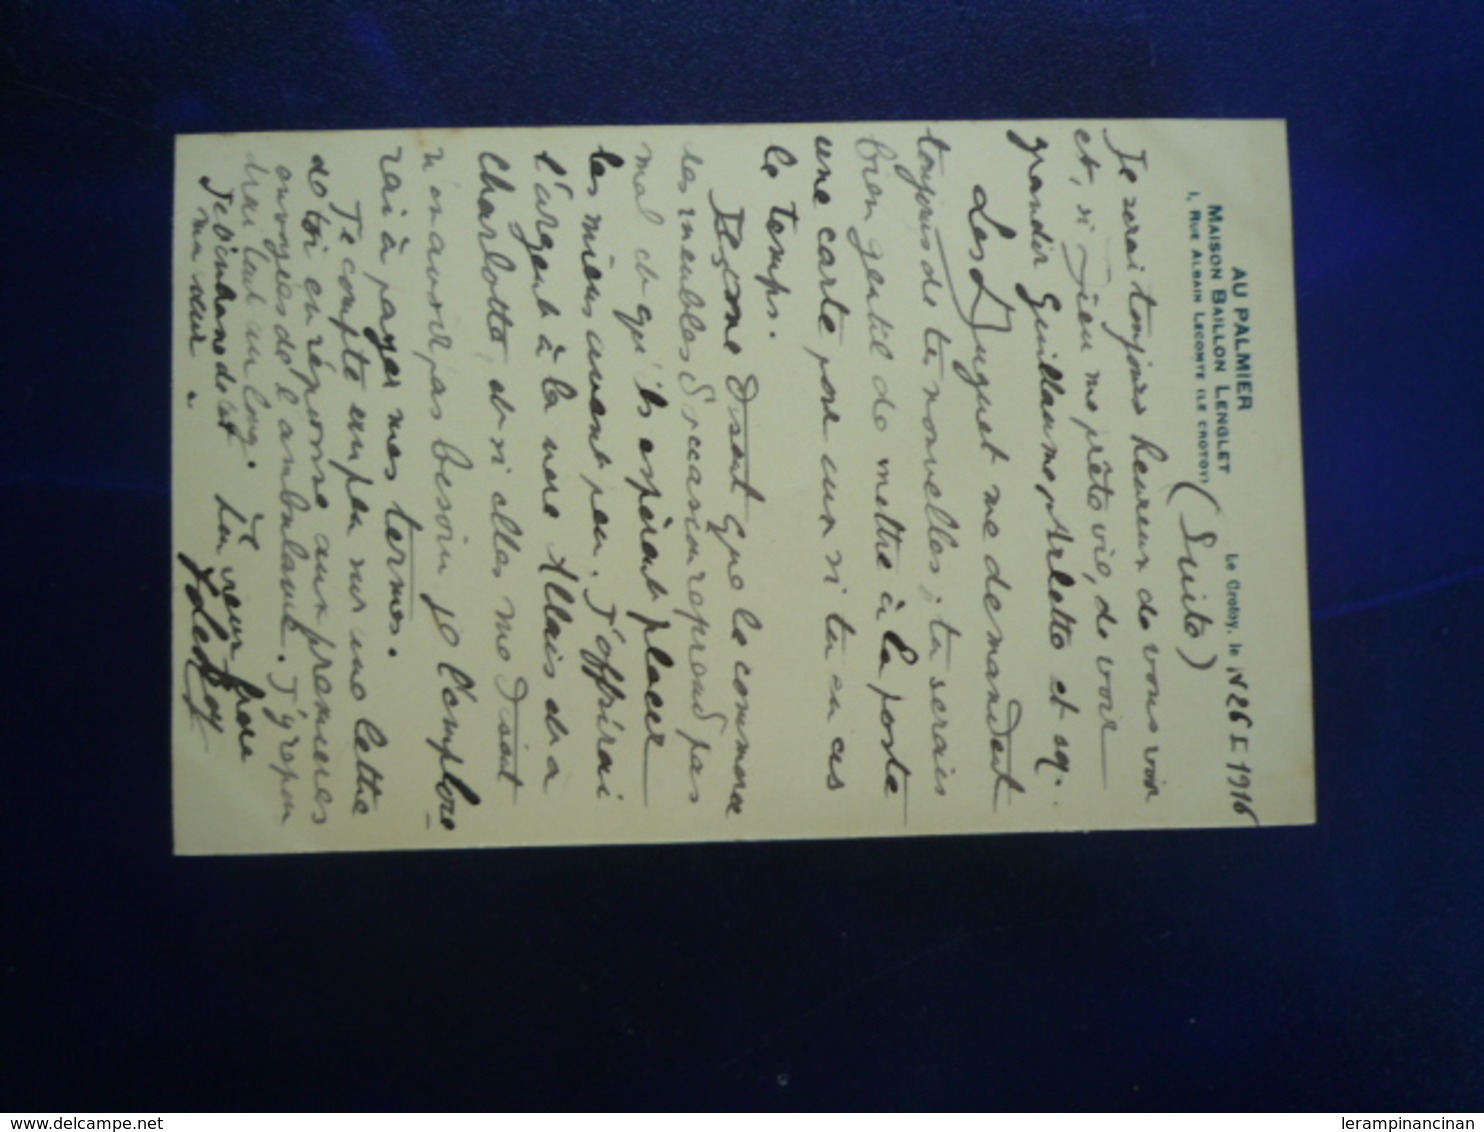 AU PALMIER
MAISON BAILLON LENGLET
1, RUE ALBAIN LECOMTE (LE CROTOY)
Le Crotoy, le 26 1916
(Suite)
Je serai toujours heureux de vous voir
et, si Dieu me prête vie, de voir
grandir Guillaume, Arlette et
Les Duguet me demandent
toujours de tes nouvelles ; tu serais
bien gentil de mettre à la poste
une carte pour eux si tu en as
le temps.
disent que le commerce
des meubles d'occasion reprend pas
mal et qu'ils espèrent placer
les miens avant peu. J'offrirai
l'argent à la mère Allais et a
Charlotte, et si elles me disent
n'en avoir pas besoin je l'emploie-
rai à payer mes termes.
Je compte un peu sur une lettre
de toi en réponse aux premières
envoyées de l'ambulance. J'y répon
drai tout au long. Ton vieux frère
Je
ma sœur.
delcampe.net
lerampinancinan